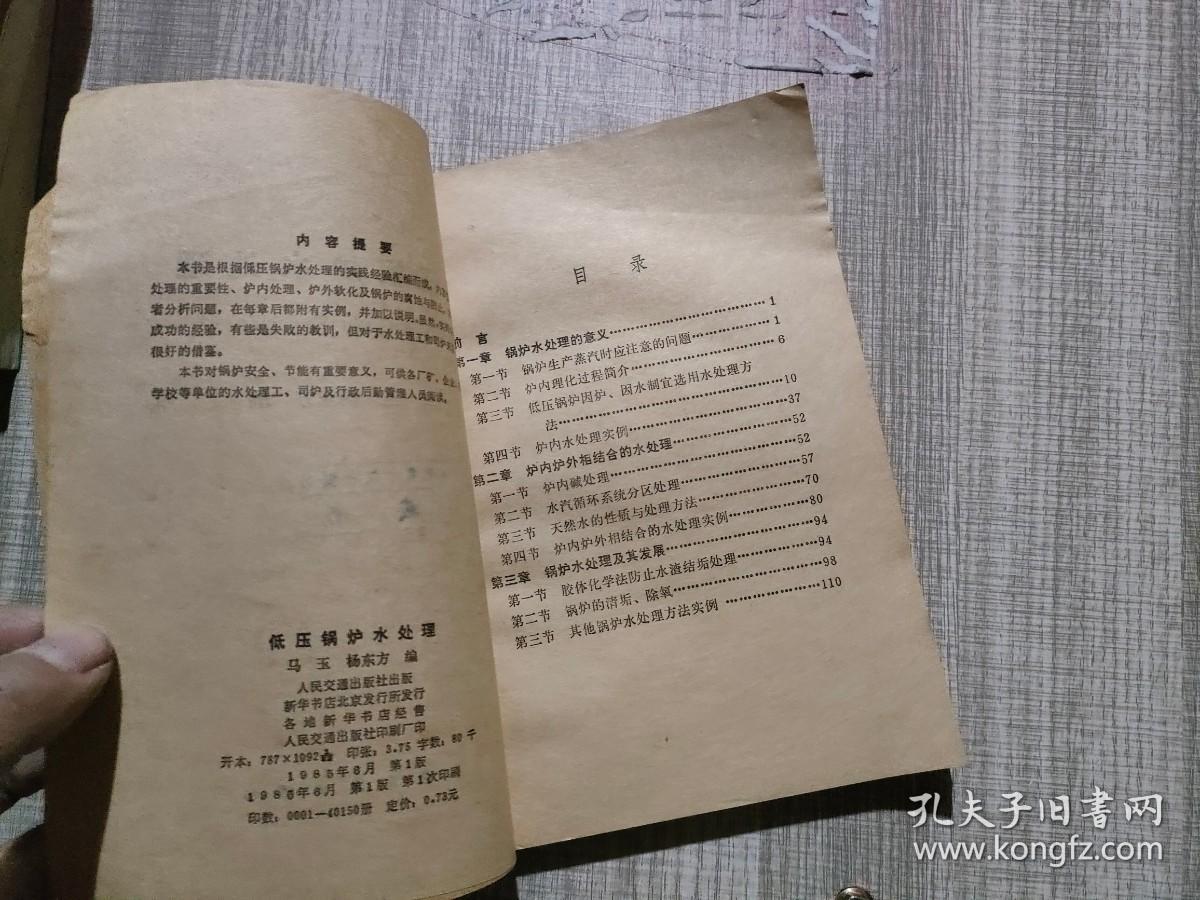 内容提要
本书是根据低压锅炉水处理的实践经验汇编而成。内
处理的重要性、炉内处理、炉外软化及锅炉的腐蚀与
者分析问题，在每章后都附有实例，并加以说明。虽然
成功的经验，有些是失败的教训，但对于水处理工和司炉
很好的借鉴。
本书对锅炉安全、节能有重要意义，可供各厂矿、企业
学校等单位的水处理工、司炉及行政后勤管理人员阅读。
低压锅炉水处理
马玉 杨东方 编
人民交通出版社出版
新华书店北京发行所发行
各地新华书店经售
人民交通出版社印刷厂印
开本：787×1092 印张：3.75 字数：80千
1985年6月 第1版
1985年6月 第1版 第1次印刷
印数：0001—40150册 定价：0.73元
目 录
言
第一章 锅炉水处理的意义……1
第一节 锅炉生产蒸汽时应注意的问题……1
第二节 炉内理化过程简介……6
第三节 低压锅炉因炉、因水制宜选用水处理方
法……10
第四节 炉内水处理实例……37
第二章 炉内炉外相结合的水处理……52
第一节 炉内碱处理……52
第二节 水汽循环系统分区处理……57
第三节 天然水的性质与处理方法……70
第四节 炉内炉外相结合的水处理实例……80
第三章 锅炉水处理及其发展……94
第一节 胶体化学法防止水渣结垢处理……94
第二节 锅炉的清垢、除氧……98
第三节 其他锅炉水处理方法实例……110
孔夫子旧书网
www.kongfz.com